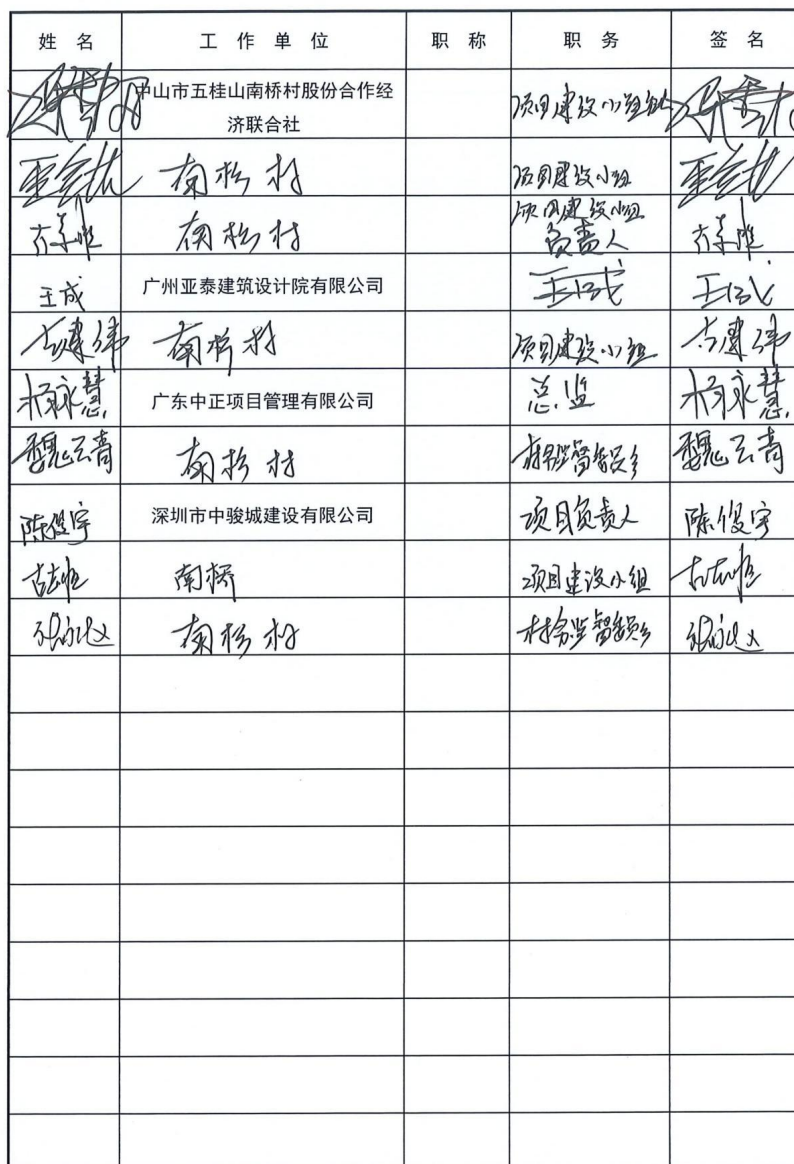 姓 名 工 作 单 位 职 称 职 务 签 名
中山市五桂山南桥村股份合作经
济联合社
项目建设小组
南桥村 项目建设小组
南桥村 项目建设小组
负责人
王成 广州亚泰建筑设计院有限公司 王成 王成
古建伟 南桥村 项目建设小组 古建伟
杨永慧 广东中正项目管理有限公司 总监 杨永慧
魏云青 南桥村 村务监督委员 魏云青
陈俊宇 深圳市中骏城建设有限公司 项目负责人 陈俊宇
南桥 项目建设小组
南桥村 村务监督委员